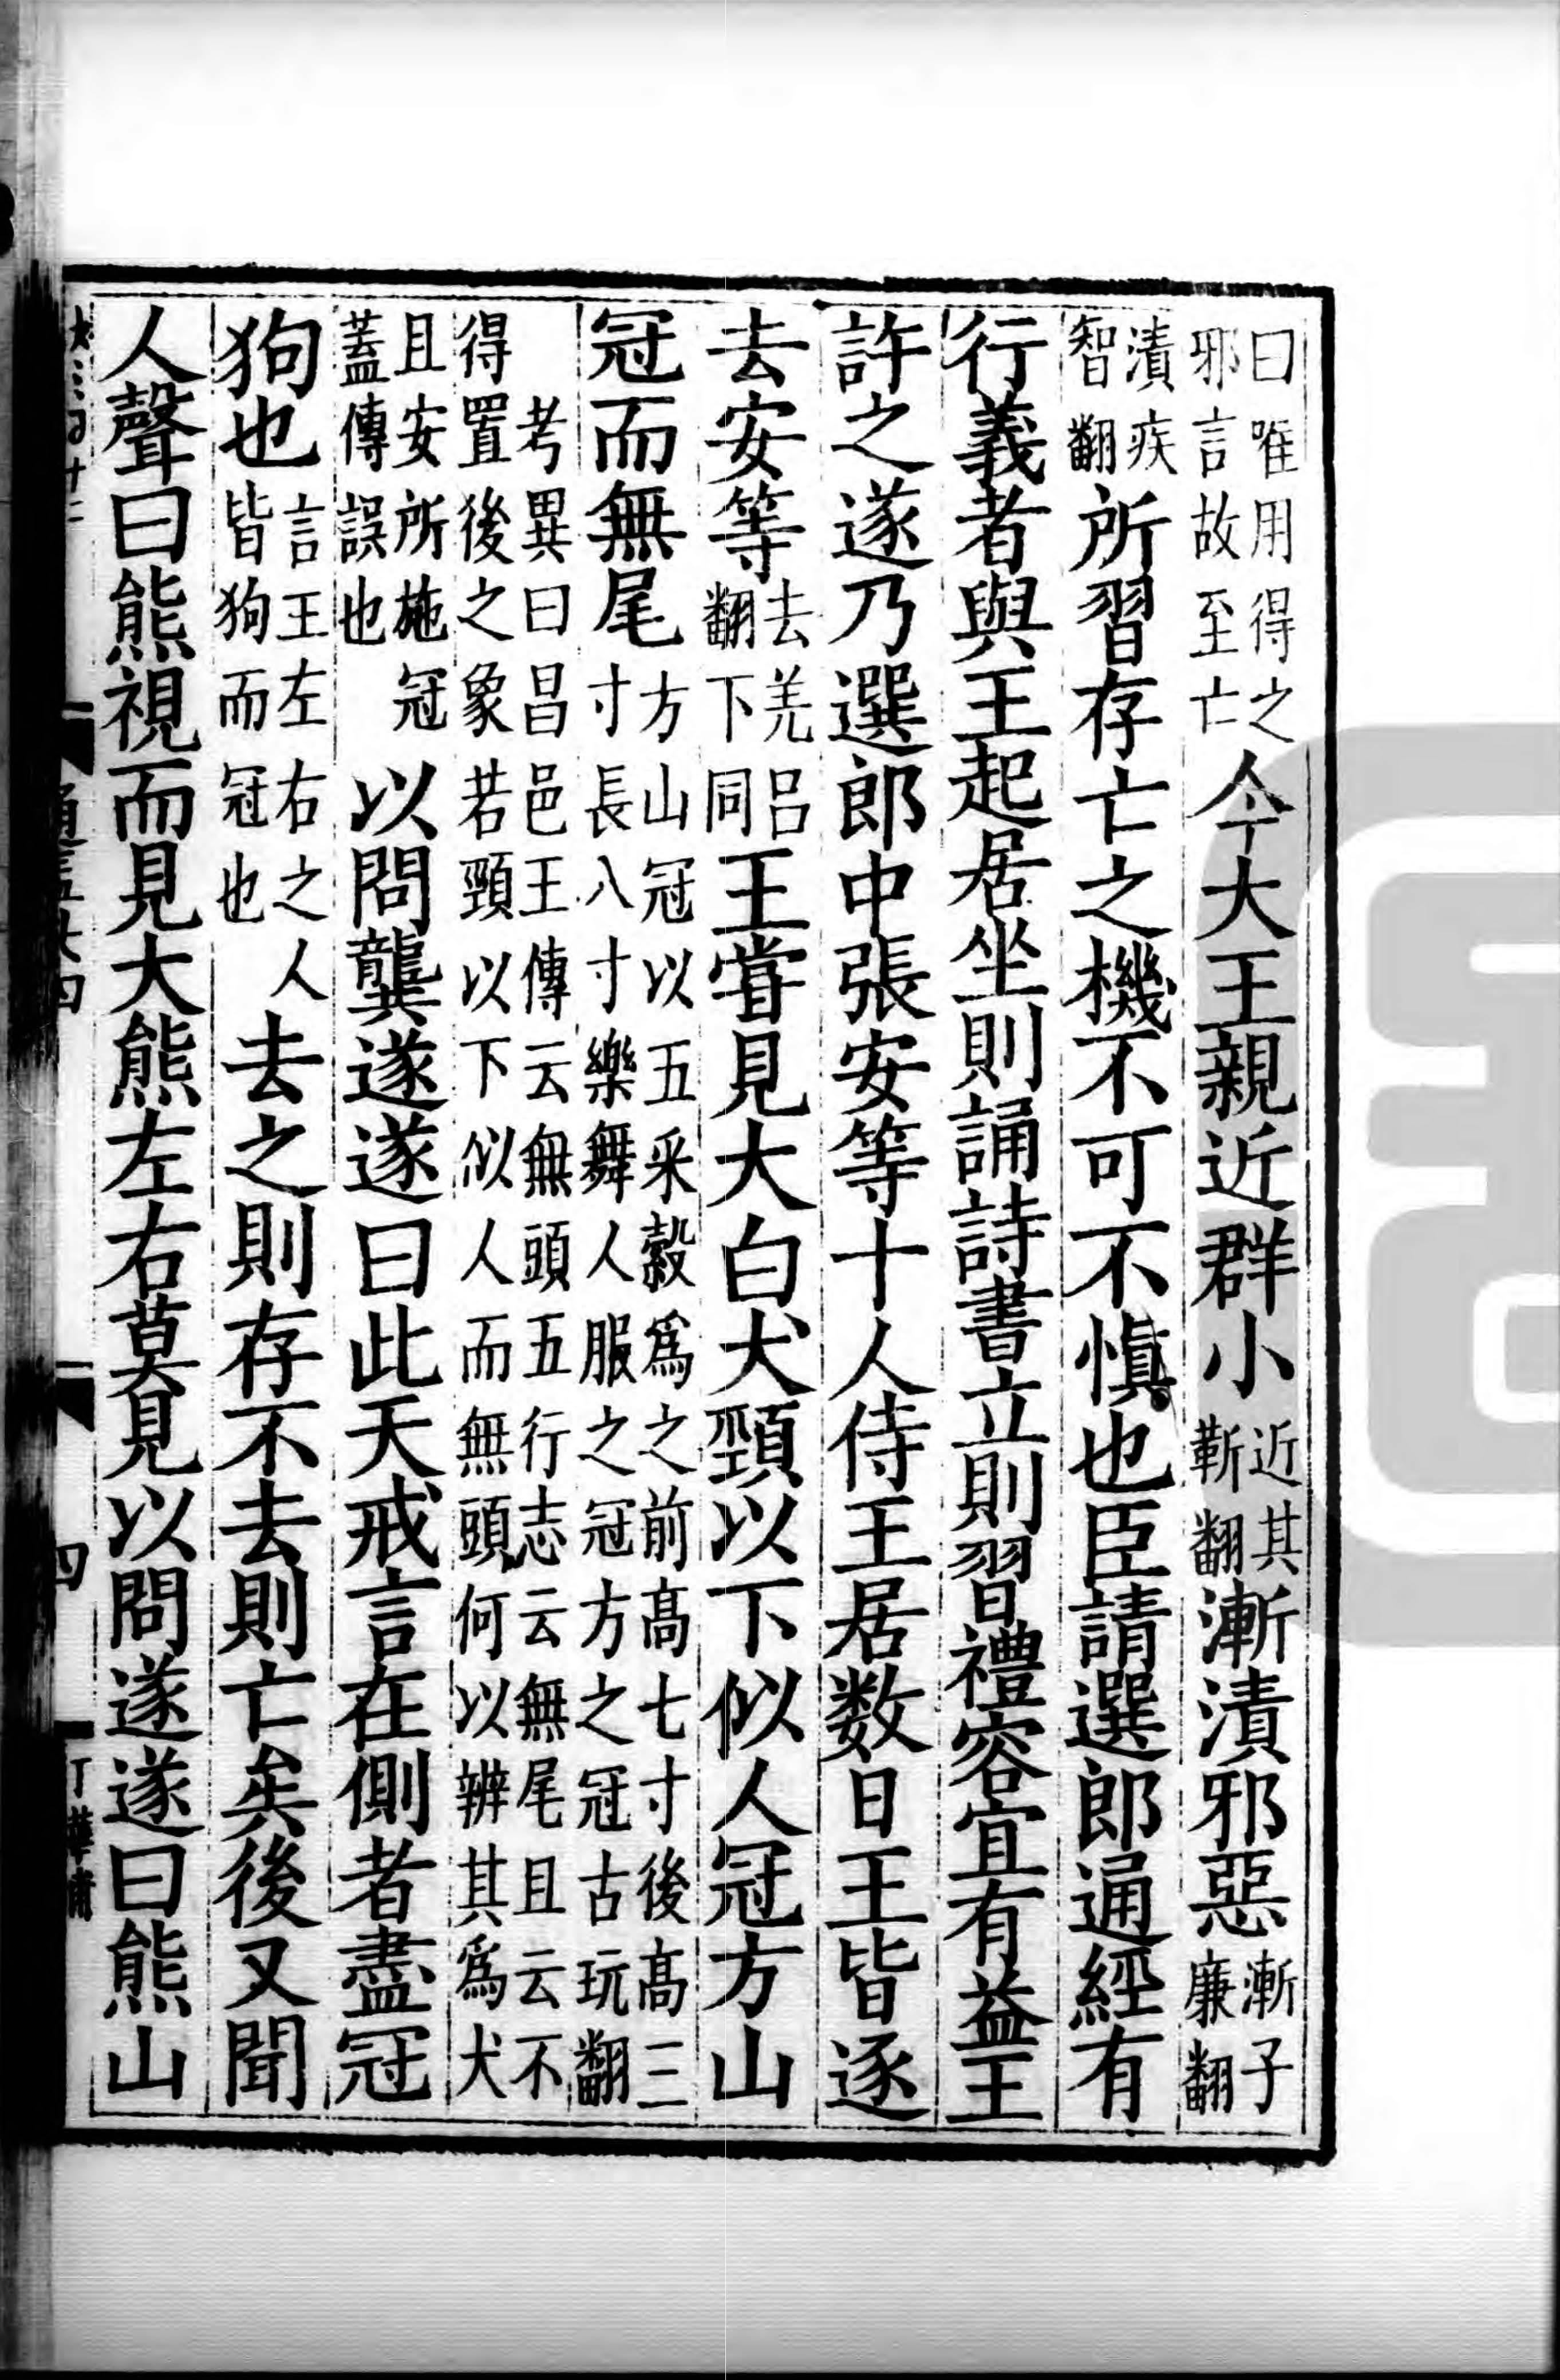 曰唯用得之邪言故至亡今大王親近群小近其靳翻漸漬邪惡漸子廉翻
漬疾智翻所習存亡之機不可不慎也臣請選郎通經有
行義者與王起居坐則誦詩書立則習禮容宜有益王
許之遂乃選郎中張安等十人侍王居数日王皆逐
去安等去羌呂翻下同王嘗見大白犬頸以下似人冠方山
冠而無尾方山冠以五采縠爲之前髙七寸後髙三寸長八寸樂舞人服之冠方之冠古玩翻
考異曰昌邑王傳云無頭五行志云無尾且云不得置後之象若頸以下似人而無頭何以辨其爲犬
且安所施冠蓋傳誤也以問龔遂遂曰此天戒言在側者盡冠
狗也言王左右之人皆狗而冠也去之則存不去則亡矣後又聞
人聲曰熊視而見大熊左右莫見以問遂遂曰熊山
四